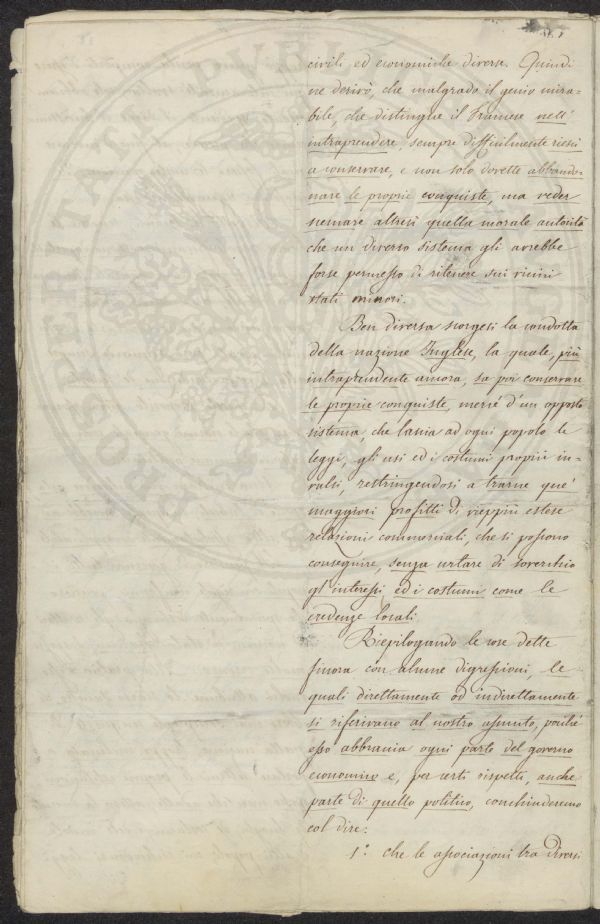 civili ed economiche diverse. Quindi
ne derivò, che malgrado il genio mira-
bile, che distingue il Francese nell'
intraprendere, sempre difficilmente riescì
a conservare, e non solo dovette abbando-
nare le proprie conquiste, ma veder
scemare altresì quella morale autorità
che un diverso sistema gli avrebbe
forse permesso di ritenere sui vicini
stati minori.
Ben diversa scorgesi la condotta
della nazione Inglese, la quale, più
intraprendente ancora, sa poi conservare
le proprie conquiste, mercé d'un opposto
sistema, che lascia ad ogni popolo le
leggi, gli usi ed i costumi proprii in-
valsi, restringendosi a trarne que'
maggiori profitti di vieppiù estese
relazioni commerciali, che si possono
conseguire, senza urtare di soverchio
gl'interessi, ed i costumi come le
credenze locali.
Riepilogando le cose dette
finora con alcune digressioni, le
quali direttamente od indirettamente
si riferivano al nostro assunto, poiché
esso abbraccia ogni parte del governo
economico e, per certi rispetti, anche
parte di quello politico, conchinderemo
col dire:
1.° che le associazioni tra diversi